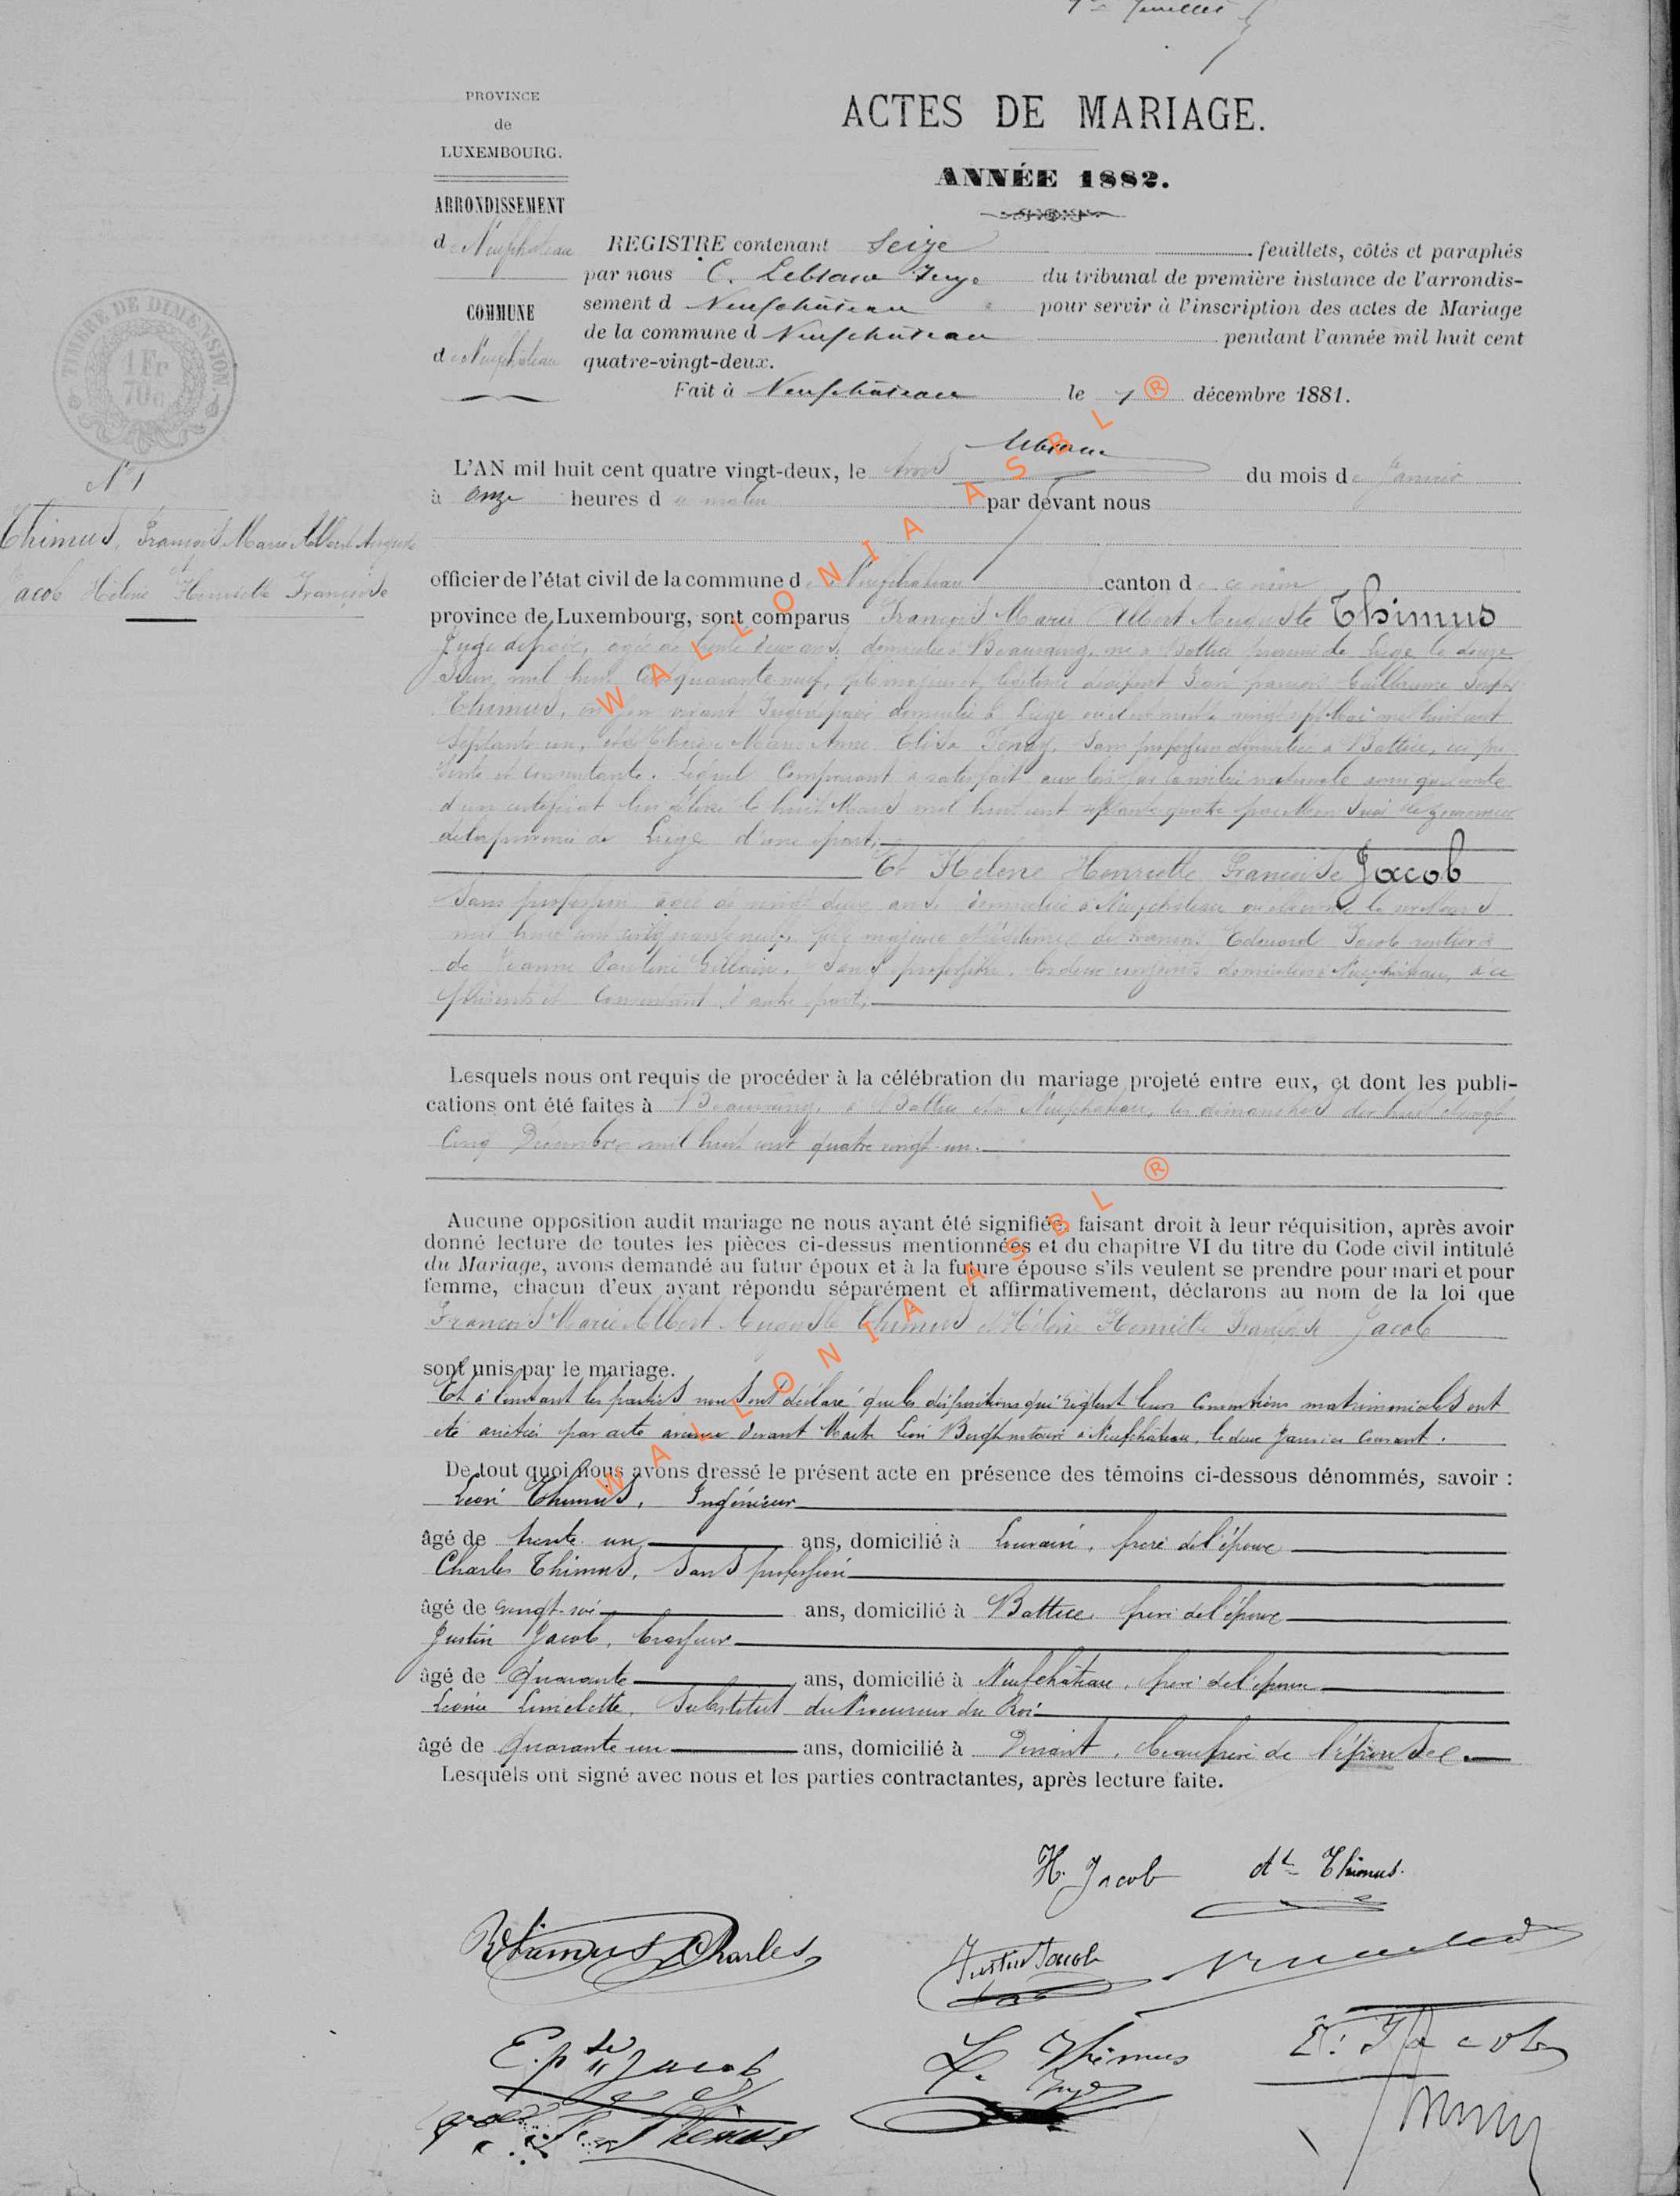 feuillets
PROVINCE
de
LUXEMBOURG.
ARRONDISSEMENT
de Neufchâteau
COMMUNE
de Neufchâteau
TIMBRE DE DIMENSION
1 Fr
70c
ACTES DE MARIAGE.
ANNÉE 1882.
REGISTRE contenant Seize feuillets, côtés et paraphés
par nous C. Juge du tribunal de première instance de l'arrondis-
sement d Neufchâteau pour servir à l'inscription des actes de Mariage
de la commune d Neufchâteau pendant l'année mil huit cent
quatre-vingt-deux.
Fait à Neufchâteau le 7 décembre 1881.
N° 1
Thimus, François Marie Albert Auguste
et
Jacob Hélène Henriette Françoise
L'AN mil huit cent quatre vingt-deux, le trois du mois de Janvier
à onze heures du matin par devant nous
officier de l'état civil de la commune de Neufchâteau canton de ce nom
province de Luxembourg, sont comparus François Marie Albert Auguste Thimus
Juge de paix, âgé de trente deux ans, domicilié à Beauraing, né à Battice province de Liège le douze
Juin mil huit cent quarante-neuf, fils majeur et légitime de François Guillaume Joseph
Thimus, en son vivant Juge de paix domicilié à Liège où il est mort le vingt sept Mai mil huit cent
septante un, et de Marie Anne Elisa sans profession domiciliée à Battice, ici pré-
sente et consentante. Lequel Comparant a satisfait aux lois sur la milice nationale ainsi que conste
d'un certificat lui délivré le huit Mars mil huit cent septante quatre par Monsieur le gouverneur
de la province de Liège d'une part,
Et Hélène Henriette Françoise Jacob
Sans profession âgée de vingt deux ans, domiciliée à Neufchâteau où elle est née le Mars
mil huit cent cinquante neuf, fille majeure et légitime de François Edouard Jacob rentier &
de Jeanne Pauline Gillain, Sans profession, les deux conjoints domiciliés à Neufchâteau, à ce
présents et Consentant d'autre part,
Lesquels nous ont requis de procéder à la célébration du mariage projeté entre eux, et dont les publi-
cations ont été faites à Beauraing, à Battice et à Neufchâteau, les dimanches dix huit et vingt
Cinq Décembre mil huit cent quatre vingt-un.
Aucune opposition audit mariage ne nous ayant été signifiée, faisant droit à leur réquisition, après avoir
donné lecture de toutes les pièces ci-dessus mentionnées et du chapitre VI du titre du Code civil intitulé
du Mariage, avons demandé au futur époux et à la future épouse s'ils veulent se prendre pour mari et pour
femme, chacun d'eux ayant répondu séparément et affirmativement, déclarons au nom de la loi que
François Marie Albert Auguste Thimus et Hélène Henriette Françoise Jacob
sont unis par le mariage.
Et à l'instant les parties nous ont déclaré que les dispositions qui règlent leurs conventions matrimoniales ont
été arrêtées par acte avenu devant Maitre Léon Bergh notaire à Neufchâteau, le deux Janvier Courant.
De tout quoi nous avons dressé le présent acte en présence des témoins ci-dessous dénommés, savoir :
Léon Thimus, Ingénieur
âgé de trente un ans, domicilié à Louvain, frère de l'époux
Charles Thimus, Sans profession
âgé de vingt-six ans, domicilié à Battice, frère de l'époux
Justin Jacob, brasseur
âgé de Quarante ans, domicilié à Neufchâteau, frère de l'épouse
Léonie Limelette, Substitut du Procureur du Roi
âgé de Quarante un ans, domicilié à Dinant, beau frère de l'épouse
Lesquels ont signé avec nous et les parties contractantes, après lecture faite.
H. Jacob At Thimus.
Thimus Charles Justin Jacob
E. Jacob L. Thimus E. Jacob
Thimus
WALLONIA ASBL ®
WALLONIA ASBL ®